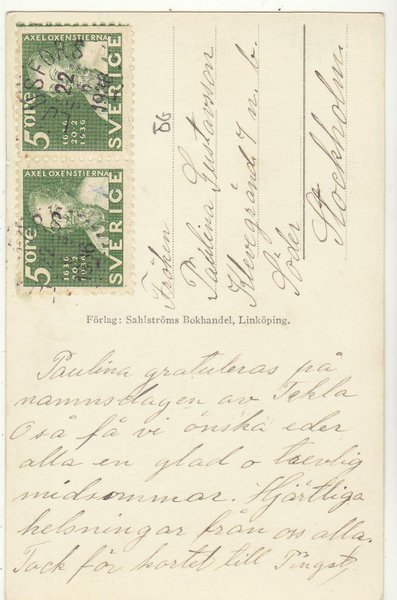 AXEL OXENSTIERNA
5 ÖRE
1636 20/2 1936
SVERIGE
22
1936
AXEL OXENSTIERNA
5 ÖRE
1636 20/2 1936
SVERIGE
BG
Fröken
Paulina Gustavsson
Klevgränd 7 n. b.
Söder
Stockholm.
Förlag: Sahlströms Bokhandel, Linköping.
Paulina gratuleras på
namnsdagen av Tekla
Oså få vi önska eder
alla en glad o trevlig
midsommar. Hjärtliga
helsningar från oss alla.
Tack för kortet till Pingst